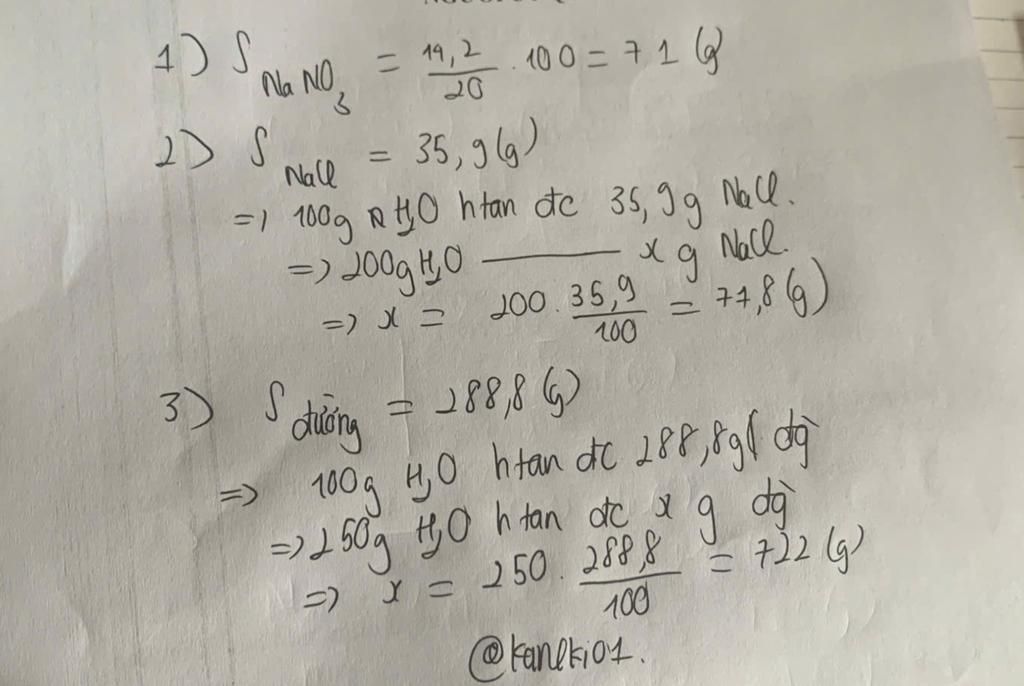 1) S NaNO3 = 14,2/20 . 100 = 71 (g)
2) S NaCl = 35,9 (g)
=) 100g H2O htan đc 35,9 g NaCl.
=) 200g H2O ——— x g NaCl.
=) x = 200 . 35,9/100 = 71,8 (g)
3) S đường = 288,8 (g)
=) 100g H2O htan đc 288,8g đg`
=) 250g H2O htan đc x g đg`
=) x = 250 . 288,8/100 = 722 (g)
@kaneki01.